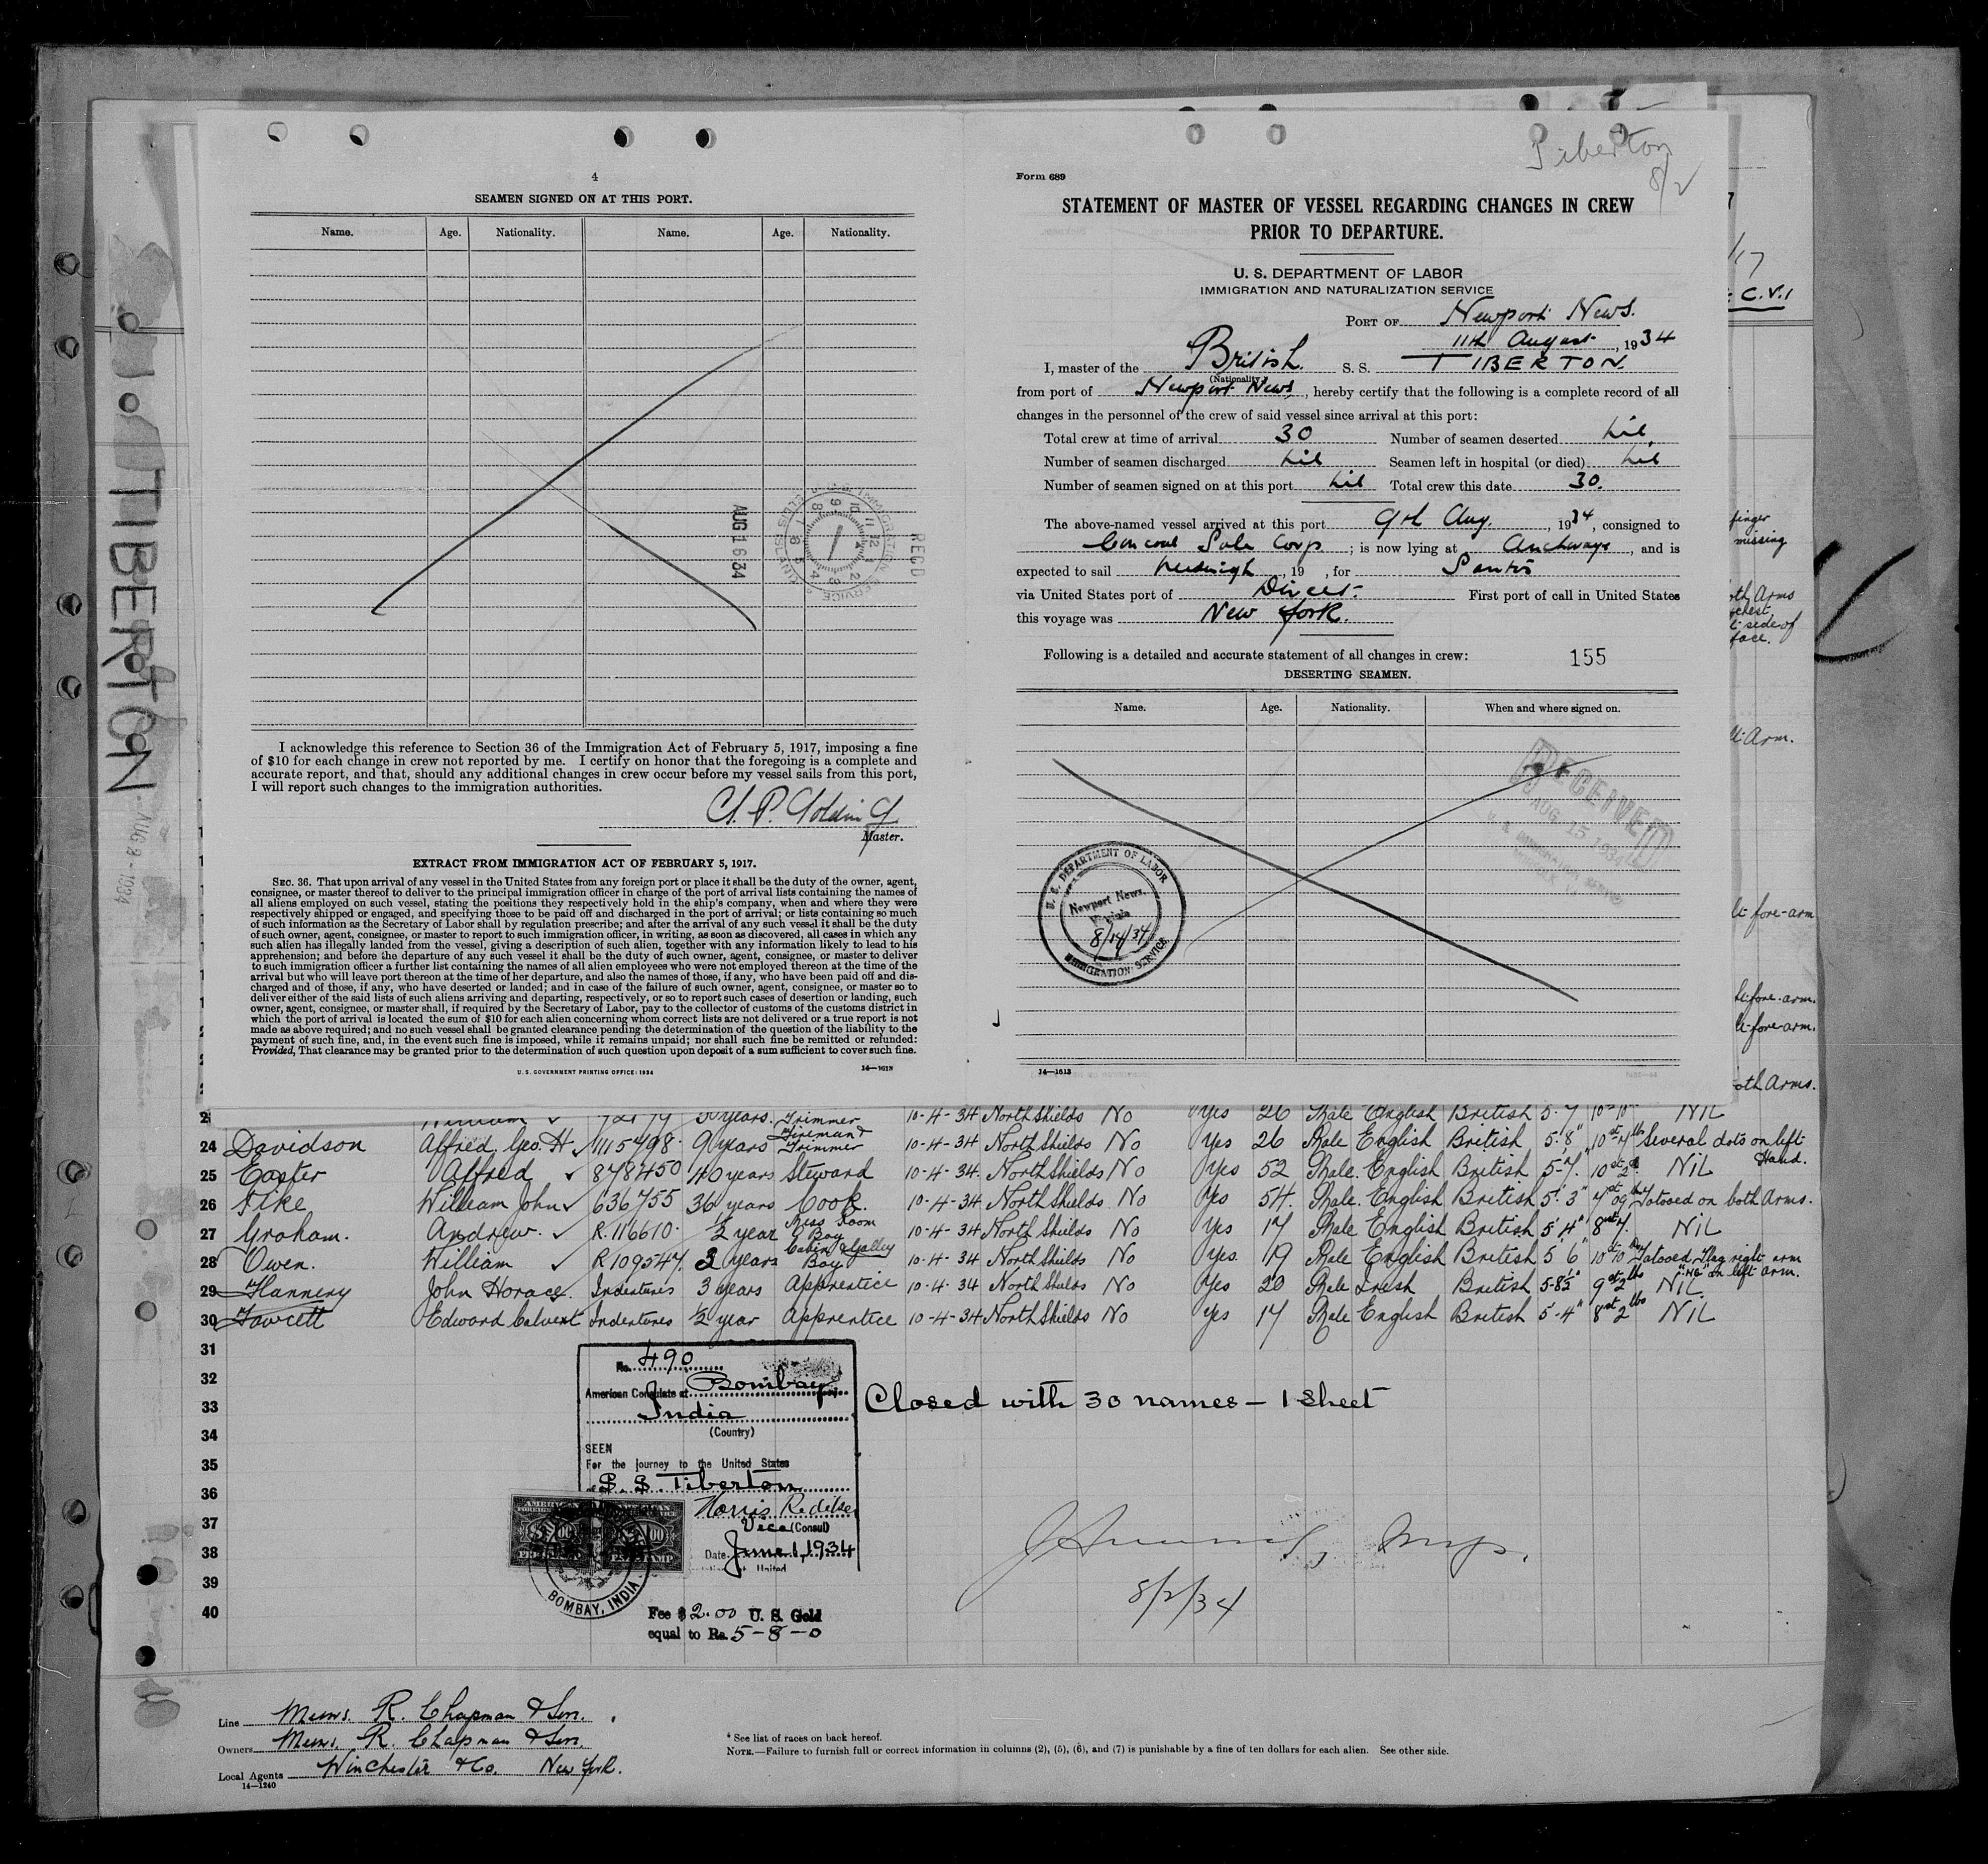 TIBERTON
AUG 2-1934
4
SEAMEN SIGNED ON AT THIS PORT.
Name. Age. Nationality. Name. Age. Nationality.
AUG 16 34
REC'D
I acknowledge this reference to Section 36 of the Immigration Act of February 5, 1917, imposing a fine
of $10 for each change in crew not reported by me. I certify on honor that the foregoing is a complete and
accurate report, and that, should any additional changes in crew occur before my vessel sails from this port,
I will report such changes to the immigration authorities.
Master.
EXTRACT FROM IMMIGRATION ACT OF FEBRUARY 5, 1917.
SEC. 36. That upon arrival of any vessel in the United States from any foreign port or place it shall be the duty of the owner, agent,
consignee, or master thereof to deliver to the principal immigration officer in charge of the port of arrival lists containing the names of
all aliens employed on such vessel, stating the positions they respectively hold in the ship's company, when and where they were
respectively shipped or engaged, and specifying those to be paid off and discharged in the port of arrival; or lists containing so much
of such information as the Secretary of Labor shall by regulation prescribe; and after the arrival of any such vessel it shall be the duty
of such owner, agent, consignee, or master to report to such immigration officer, in writing, as soon as discovered, all cases in which any
such alien has illegally landed from the vessel, giving a description of such alien, together with any information likely to lead to his
apprehension; and before the departure of any such vessel it shall be the duty of such owner, agent, consignee, or master to deliver
to such immigration officer a further list containing the names of all alien employees who were not employed thereon at the time of the
arrival but who will leave port thereon at the time of her departure, and also the names of those, if any, who have been paid off and dis-
charged and of those, if any, who have deserted or landed; and in case of the failure of such owner, agent, consignee, or master so to
deliver either of the said lists of such aliens arriving and departing, respectively, or so to report such cases of desertion or landing, such
owner, agent, consignee, or master shall, if required by the Secretary of Labor, pay to the collector of customs of the customs district in
which the port of arrival is located the sum of $10 for each alien concerning whom correct lists are not delivered or a true report is not
made as above required; and no such vessel shall be granted clearance pending the determination of the question of the liability to the
payment of such fine, and, in the event such fine is imposed, while it remains unpaid; nor shall such fine be remitted or refunded:
Provided, That clearance may be granted prior to the determination of such question upon deposit of a sum sufficient to cover such fine.
U. S. GOVERNMENT PRINTING OFFICE: 1934
14—1613
Tiberton
8/2
Form 689
STATEMENT OF MASTER OF VESSEL REGARDING CHANGES IN CREW
PRIOR TO DEPARTURE.
U. S. DEPARTMENT OF LABOR
IMMIGRATION AND NATURALIZATION SERVICE
PORT OF Newport News.
11th August, 1934
I, master of the British S. S. TIBERTON.
(Nationality)
from port of Newport News, hereby certify that the following is a complete record of all
changes in the personnel of the crew of said vessel since arrival at this port:
Total crew at time of arrival 30 Number of seamen deserted nil.
Number of seamen discharged nil Seamen left in hospital (or died) nil
Number of seamen signed on at this port nil Total crew this date 30.
The above-named vessel arrived at this port 9th Aug., 1934, consigned to
Corp; is now lying at Anchorage, and is
expected to sail midnight, 19 , for Santos
via United States port of Direct. First port of call in United States
this voyage was New York.
Following is a detailed and accurate statement of all changes in crew: 155
DESERTING SEAMEN.
Name. Age. Nationality. When and where signed on.
RECEIVED
AUG 15 1934
U. S. DEPARTMENT OF LABOR
Newport News,
Virginia
8/14/34
IMMIGRATION SERVICE
14—1613
C.V.1
finger
missing
oth Arms
chest
t side of
face.
t Arm.
t fore-arm
t fore-arm.
t fore-arm.
oth Arms.
years. Trimmer 10-4-34 North Shields No Yes 26 Male English British 5-7 NIL
24 Davidson Alfred Geo. H 1115798 9 years Fireman & Trimmer 10-4-34 North Shields No Yes 26 Male English British 5-8" 10st 7lbs Several dots on left Hand.
25 Easter Alfred 878450 40 years Steward 10-4-34 North Shields No Yes 52 Male English British 5-7" 10st 2 NIL
26 Fike William John 636755 36 years Cook. 10-4-34 North Shields No Yes 54. Male. English British 5'.3" Tatooed on both Arms.
27 Graham. Andrew. R.116610 1/2 year Mess Room Boy 10-4-34 North Shields No Yes 17 Male English British 5'4" 8st 7 NIL
28 Owen. William R109547 3 years Cabin & Galley Boy 10-4-34 North Shields No Yes. 19 Male English British 5'6" 10st 10 Tatooed. Flag right arm on left arm.
29 Flannery John Horace. Indentures 3 years Apprentice 10-4-34 North Shields No Yes 20 Male Irish British 5-8½" 9st 2lbs NIL.
30 Fawcett Edward Calvert Indentures 1/2 year Apprentice 10-4-34 North Shields No Yes 17 Male English British 5-4" 8st 2lbs NIL
31
32
33
34
35
36
37
38
39
40
No. 490
American Consulate at Bombay
India
(Country)
SEEN
For the journey to the United States
S. S. Tiberton
Vice (Consul)
Date June 1, 1934
BOMBAY, INDIA
Fee $2.00 U. S. Gold
equal to Rs. 5-8-0
Closed with 30 names - 1 sheet
8/2/34
Line Messrs. R. Chapman & Son.
Owners Messrs. R. Chapman & Son
Local Agents Winchester & Co. New York.
14—1240
* See list of races on back hereof.
NOTE.—Failure to furnish full or correct information in columns (2), (5), (6), and (7) is punishable by a fine of ten dollars for each alien. See other side.